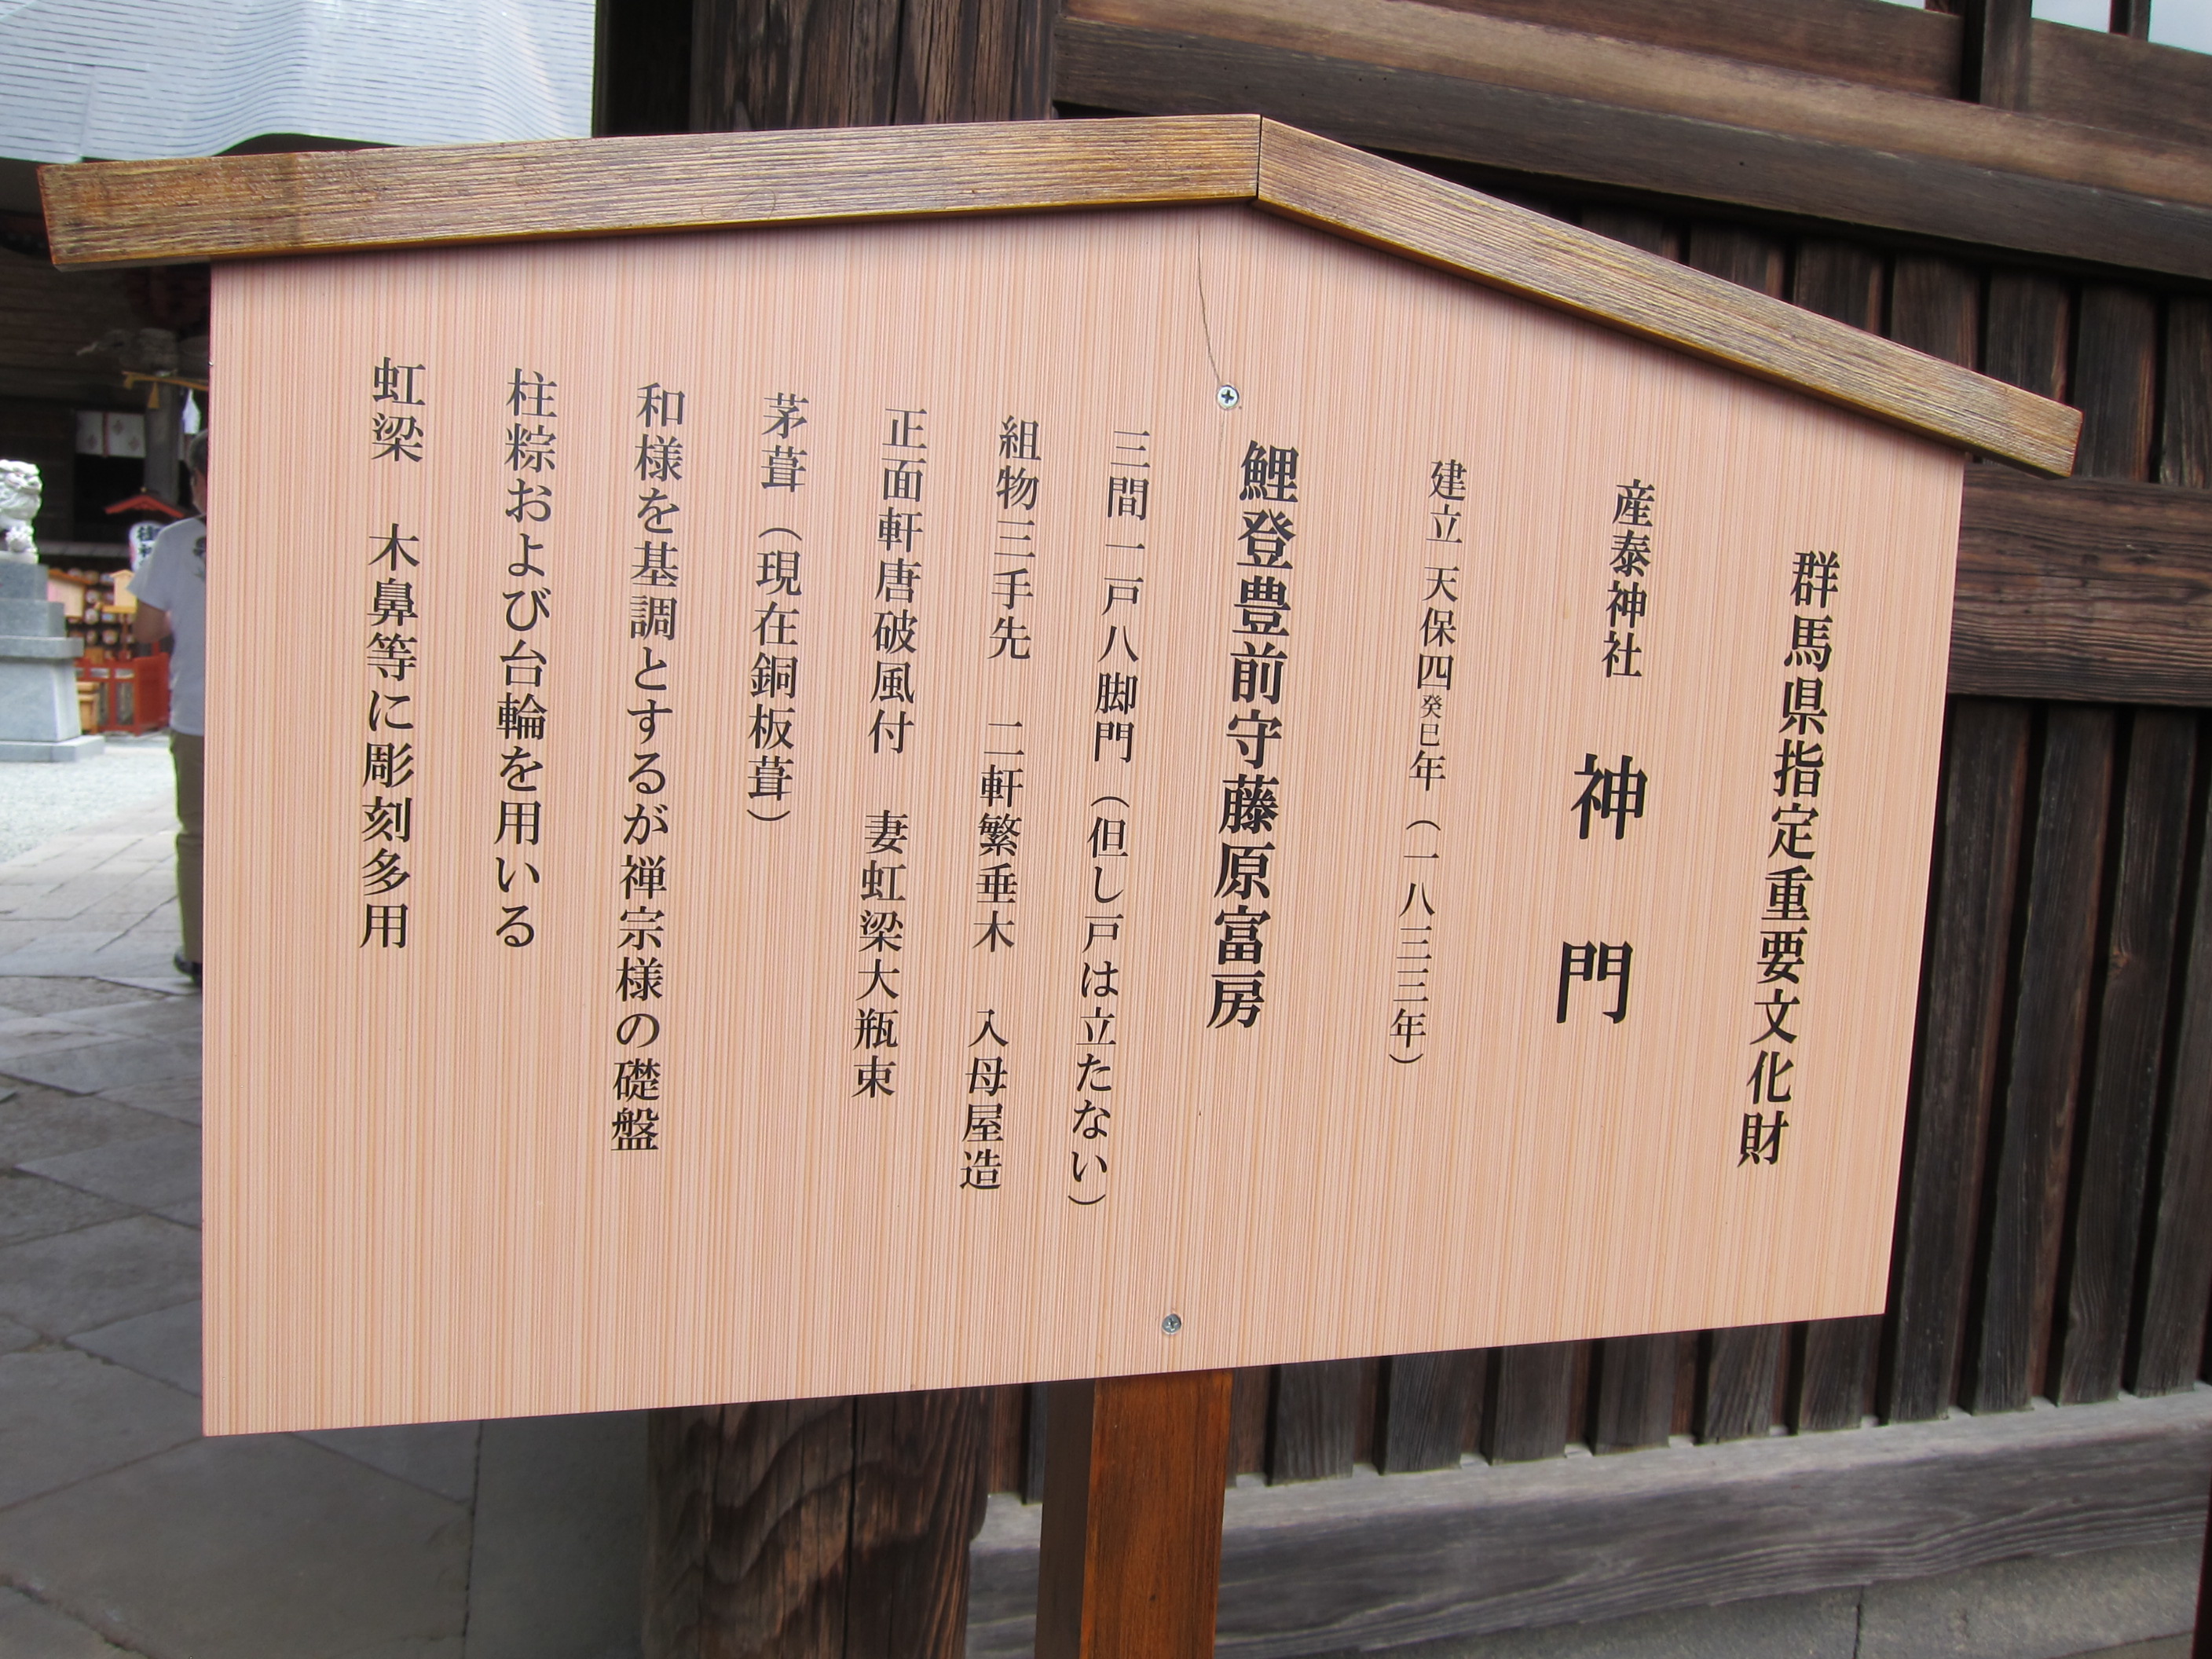 群馬県指定重要文化財
産泰神社　神門
建立 天保四癸巳年（一八三三年）
鯉登豊前守藤原富房
三間一戸八脚門（但し戸は立たない）
組物三手先　二軒繁垂木　入母屋造
正面軒唐破風付　妻虹梁大瓶束
茅葺（現在銅板葺）
和様を基調とするが禅宗様の礎盤
柱粽および台輪を用いる
虹梁　木鼻等に彫刻多用